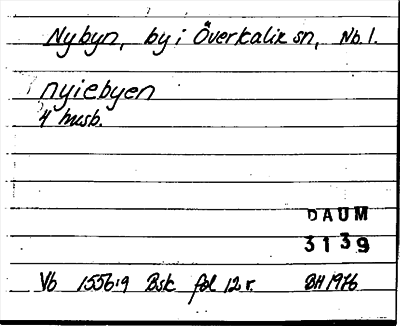 Nybyn, by i Överkalix sn, Nb. l.
nyiebyen
4 husb.
DAUM
3139
Vb 1556:9 Bsk fol 12 r. BH 1976